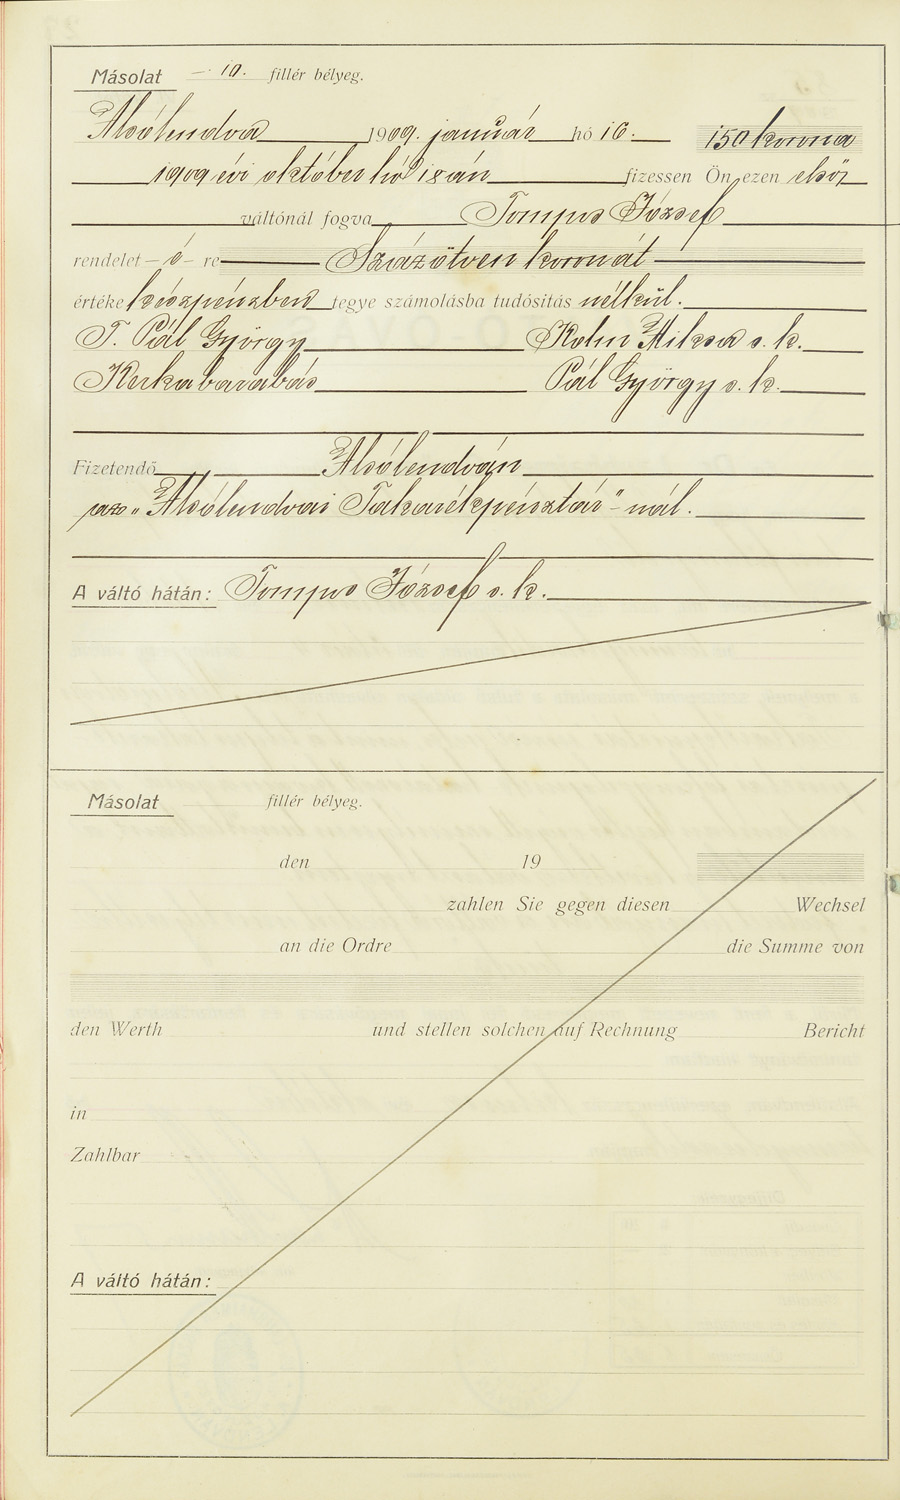 Másolat — 10. fillér bélyeg.
Alsólendva 1909. január hó 16. 150 korona
1909 évi október hó 18 án fizessen Ön ezen első
váltónál fogva Tompa József
rendelet – é – re Százötven koronát
értéke készpénzben tegye számolásba tudósitás nélkül.
T. Pál György Kohn Miksa s. k.
Kerkabarabás Pál György s. k.
Fizetendő Alsólendván
az „Alsólendvai Takarékpénztár"-nál.
A váltó hátán: Tompa József s. k.
Másolat fillér bélyeg.
den 19
zahlen Sie gegen diesen Wechsel
an die Ordre die Summe von
den Werth und stellen solchen auf Rechnung Bericht
in
Zahlbar
A váltó hátán: